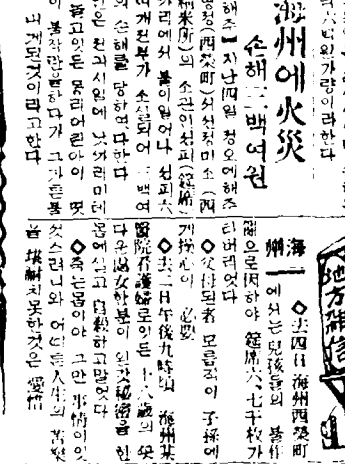 六百원가량이라한다
海州에火災
손해二百여원
해주】지난四일 정오에해주
영정(西榮町)서선정미소(西
精米所)의 소관인섬피(筵席)
가리에서 불이일어나 섬피六
여개전부가 소실되어 二百여
의 손해를 당하엿다한다
낫가리미테
들고잇든 어린아이
이 불작란를하다가 그가튼불
나게된것이라고한다
地方雜信
海州 ◇去四日 海州西榮町
에서는兒孩들의 불作
亂으로因하야 筵席六、七千枚가
타버리엇다
◇父母된者 모름직이 子孫에
게操心이 必要
◇去二日午後九時頃 海州某
醫院看護婦로잇든 十六歲의 꽃
다운處女한분이 秘密을 한
몸에실고 自殺하고말엇다
◇죽는몸이야 그만 事情이잇
것스려니와 어떠튼人生의 苦樂
을 堪耐치못한것은 愛惜